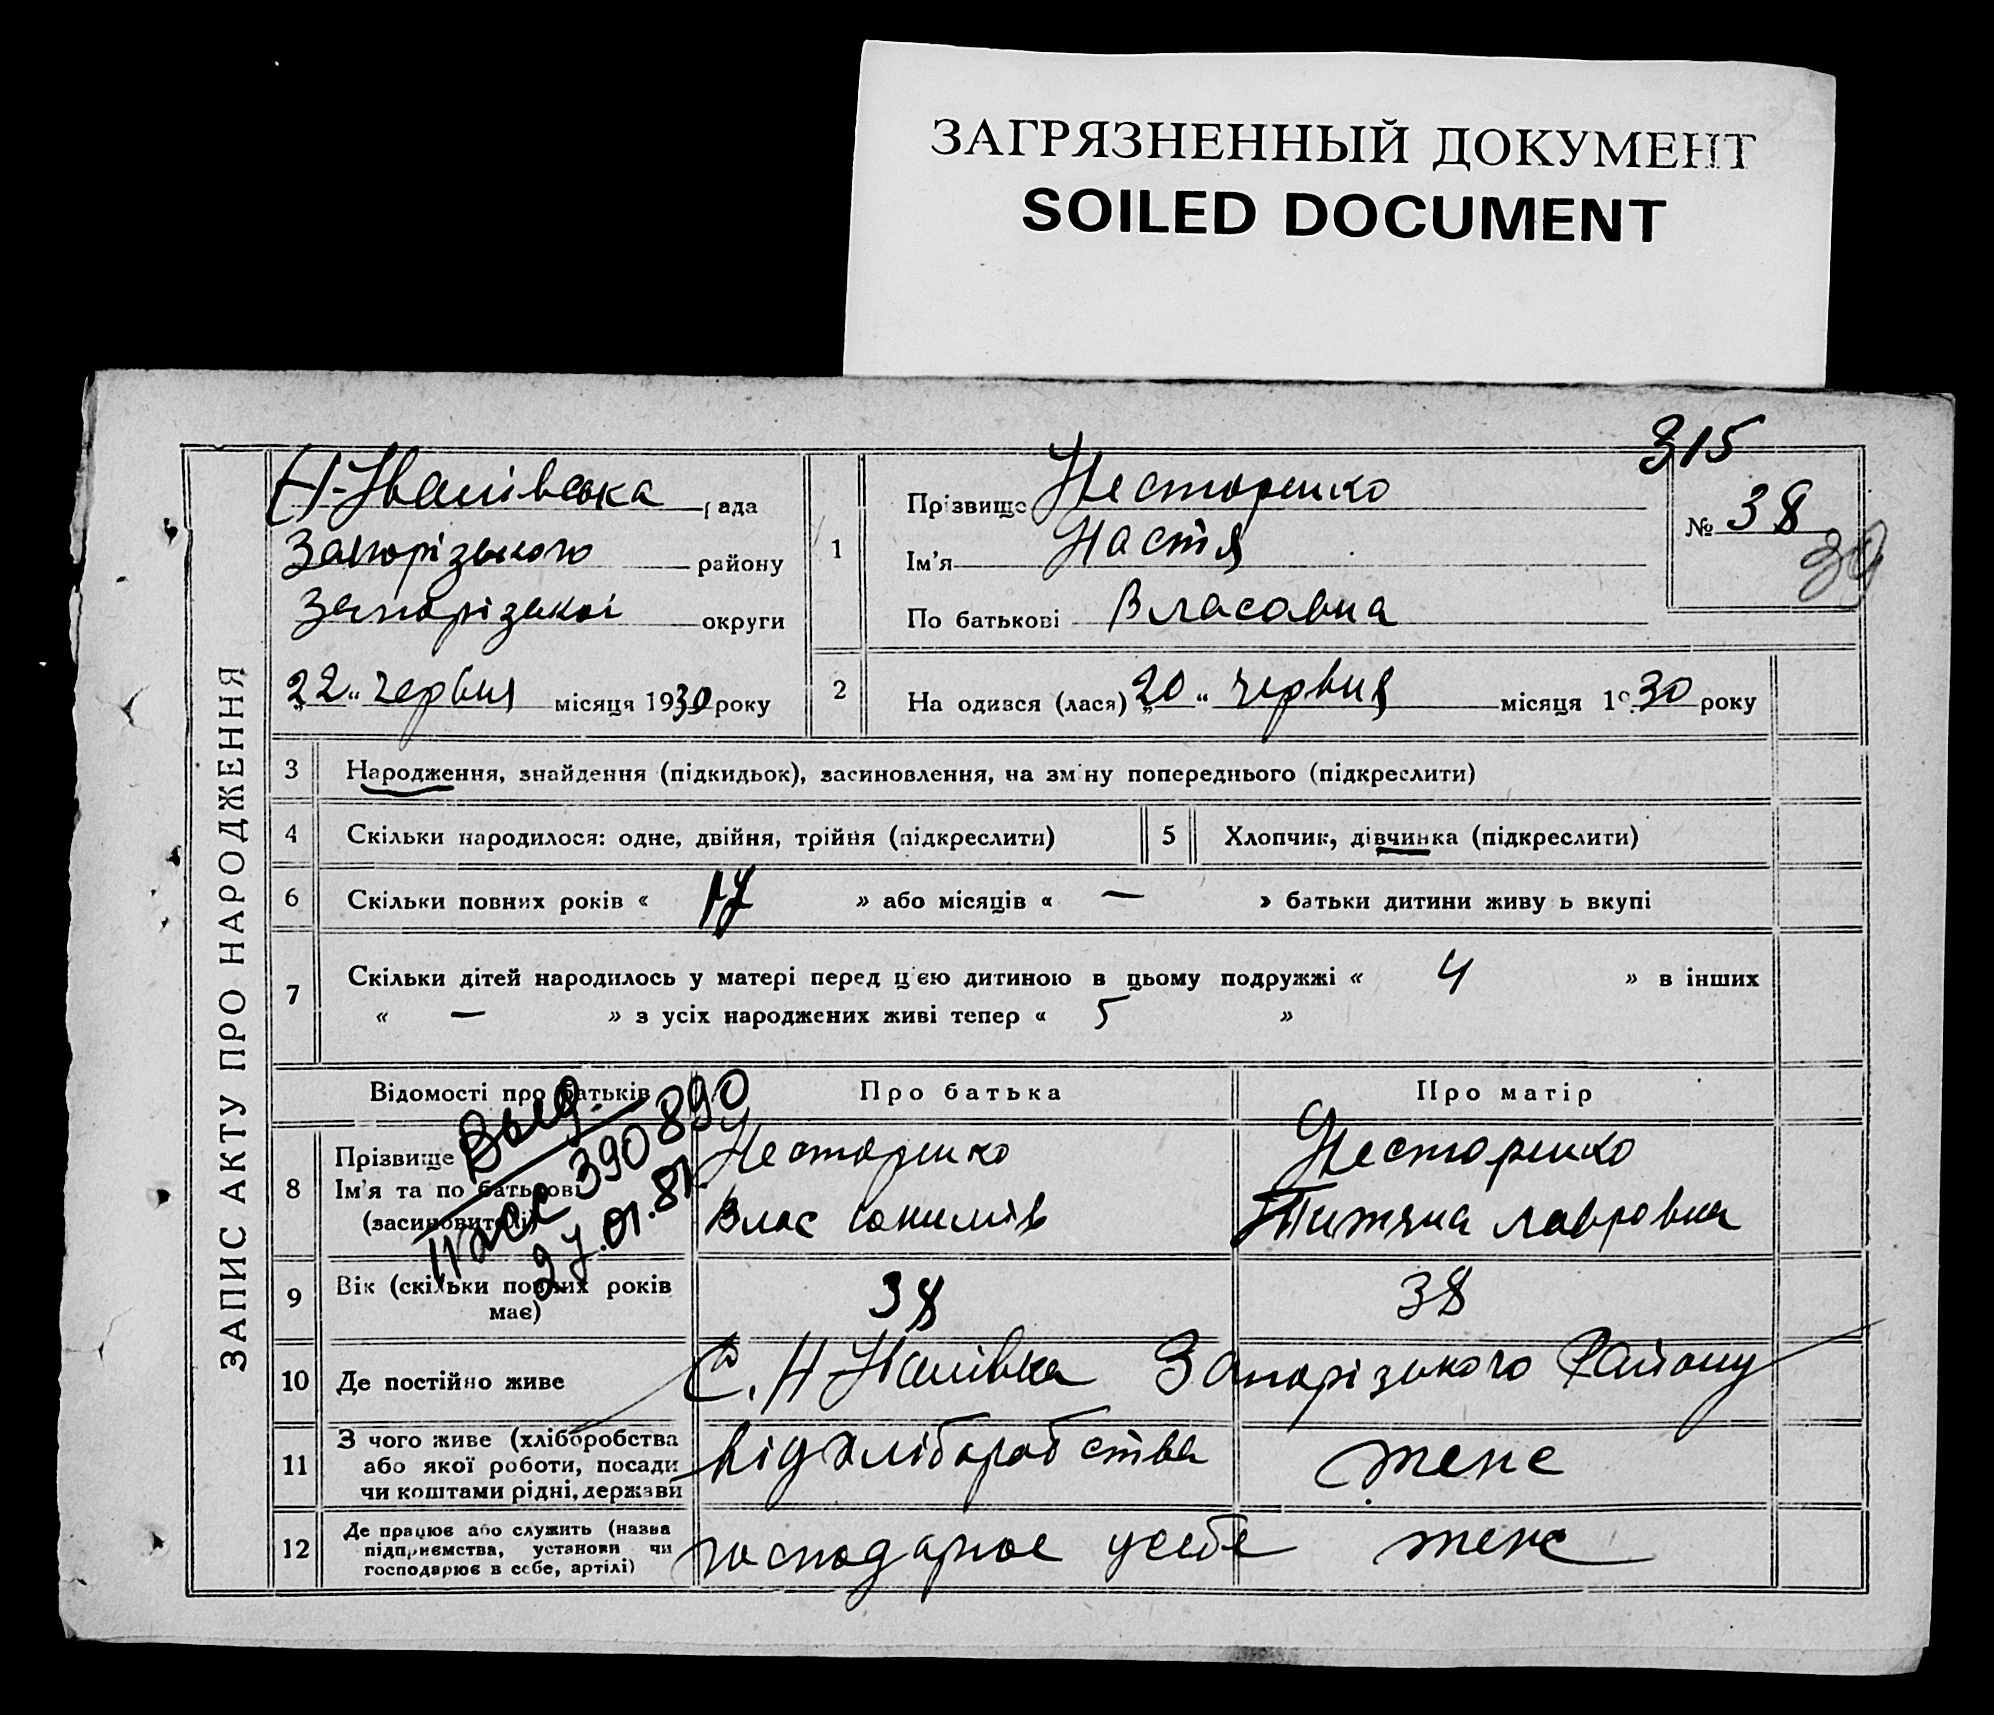 ЗАГРЯЗНЕННЫЙ ДОКУМЕНТ
SOILED DOCUMENT
315
ЗАПИС АКТУ ПРО НАРОДЖЕННЯ
Н-Іванівська рада
Запорізького району
Запорізької округи
„22“ червня місяця 1930 року
1
Прізвище Несторенко
Ім'я Настя
По батькові Власовна
№ 38
39
2 На одився (лася) „20“ червня місяця 19 30 року
3 Народження, знайдення (підкидьок), засиновлення, на зміну попереднього (підкреслити)
4 Скільки народилося: одне, двійня, трійня (підкреслити) 5 Хлопчик, дівчинка (підкреслити)
6 Скільки повних років « 17 » або місяців « — » батьки дитини живу ь вкупі
7 Скільки дітей народилось у матері перед цією дитиною в цьому подружжі « 4 » в інших
« — » з усіх народжених живі тепер « 5 »
Відомості про батьків Про батька Про матір
8 Прізвище Несторенко Несторенко
Ім'я та по батькові Влас Титяна Лавровна
(засиновителі)
390890
27.01.81
9 Вік (скільки повних років має) 38 38
10 Де постійно живе С. Н Іванівка Запорізького Району
11 З чого живе (хліборобства
або якої роботи, посади
чи коштами рідні, держави
від хліборобства
12 Де працює або служить (назва
підприємства, установи чи
господарює в себе, артілі)
господарює усебе